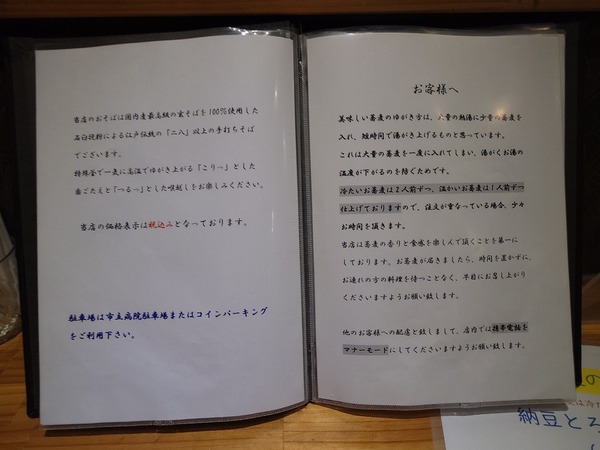 当店のおそばは国内産最高級の玄そばを100%使用した
石臼挽粉による江戸伝統の「二八」以上の手打ちそば
でございます。
特殊釜で一気に高温でゆがき上がる「こりっ」とした
歯ごたえと「つるっ」とした喉越しをお楽しみください。
当店の価格表示は税込みとなっております。
駐車場は市立病院駐車場またはコインパーキング
をご利用下さい。
お客様へ
美味しい蕎麦のゆがき方は、大量の熱湯に少量の蕎麦を
入れ、短時間で湯がき上げるものと思っています。
これは大量の蕎麦を一度に入れてしまい、湯がくお湯の
温度が下がるのを防ぐためです。
冷たいお蕎麦は2人前ずつ、温かいお蕎麦は1人前ずつ
仕上げておりますので、注文が重なっている場合、少々
お時間を頂きます。
当店は蕎麦の香りと食感を楽しんで頂くことを第一に
しております。お蕎麦が届きましたら、時間を置かずに、
お連れの方の料理を待つことなく、早目にお召し上がり
くださいますようお願い致します。
他のお客様への配慮と致しまして、店内では携帯電話を
マナーモードにしてくださいますようお願い致します。
の
は冷た
納豆とろ